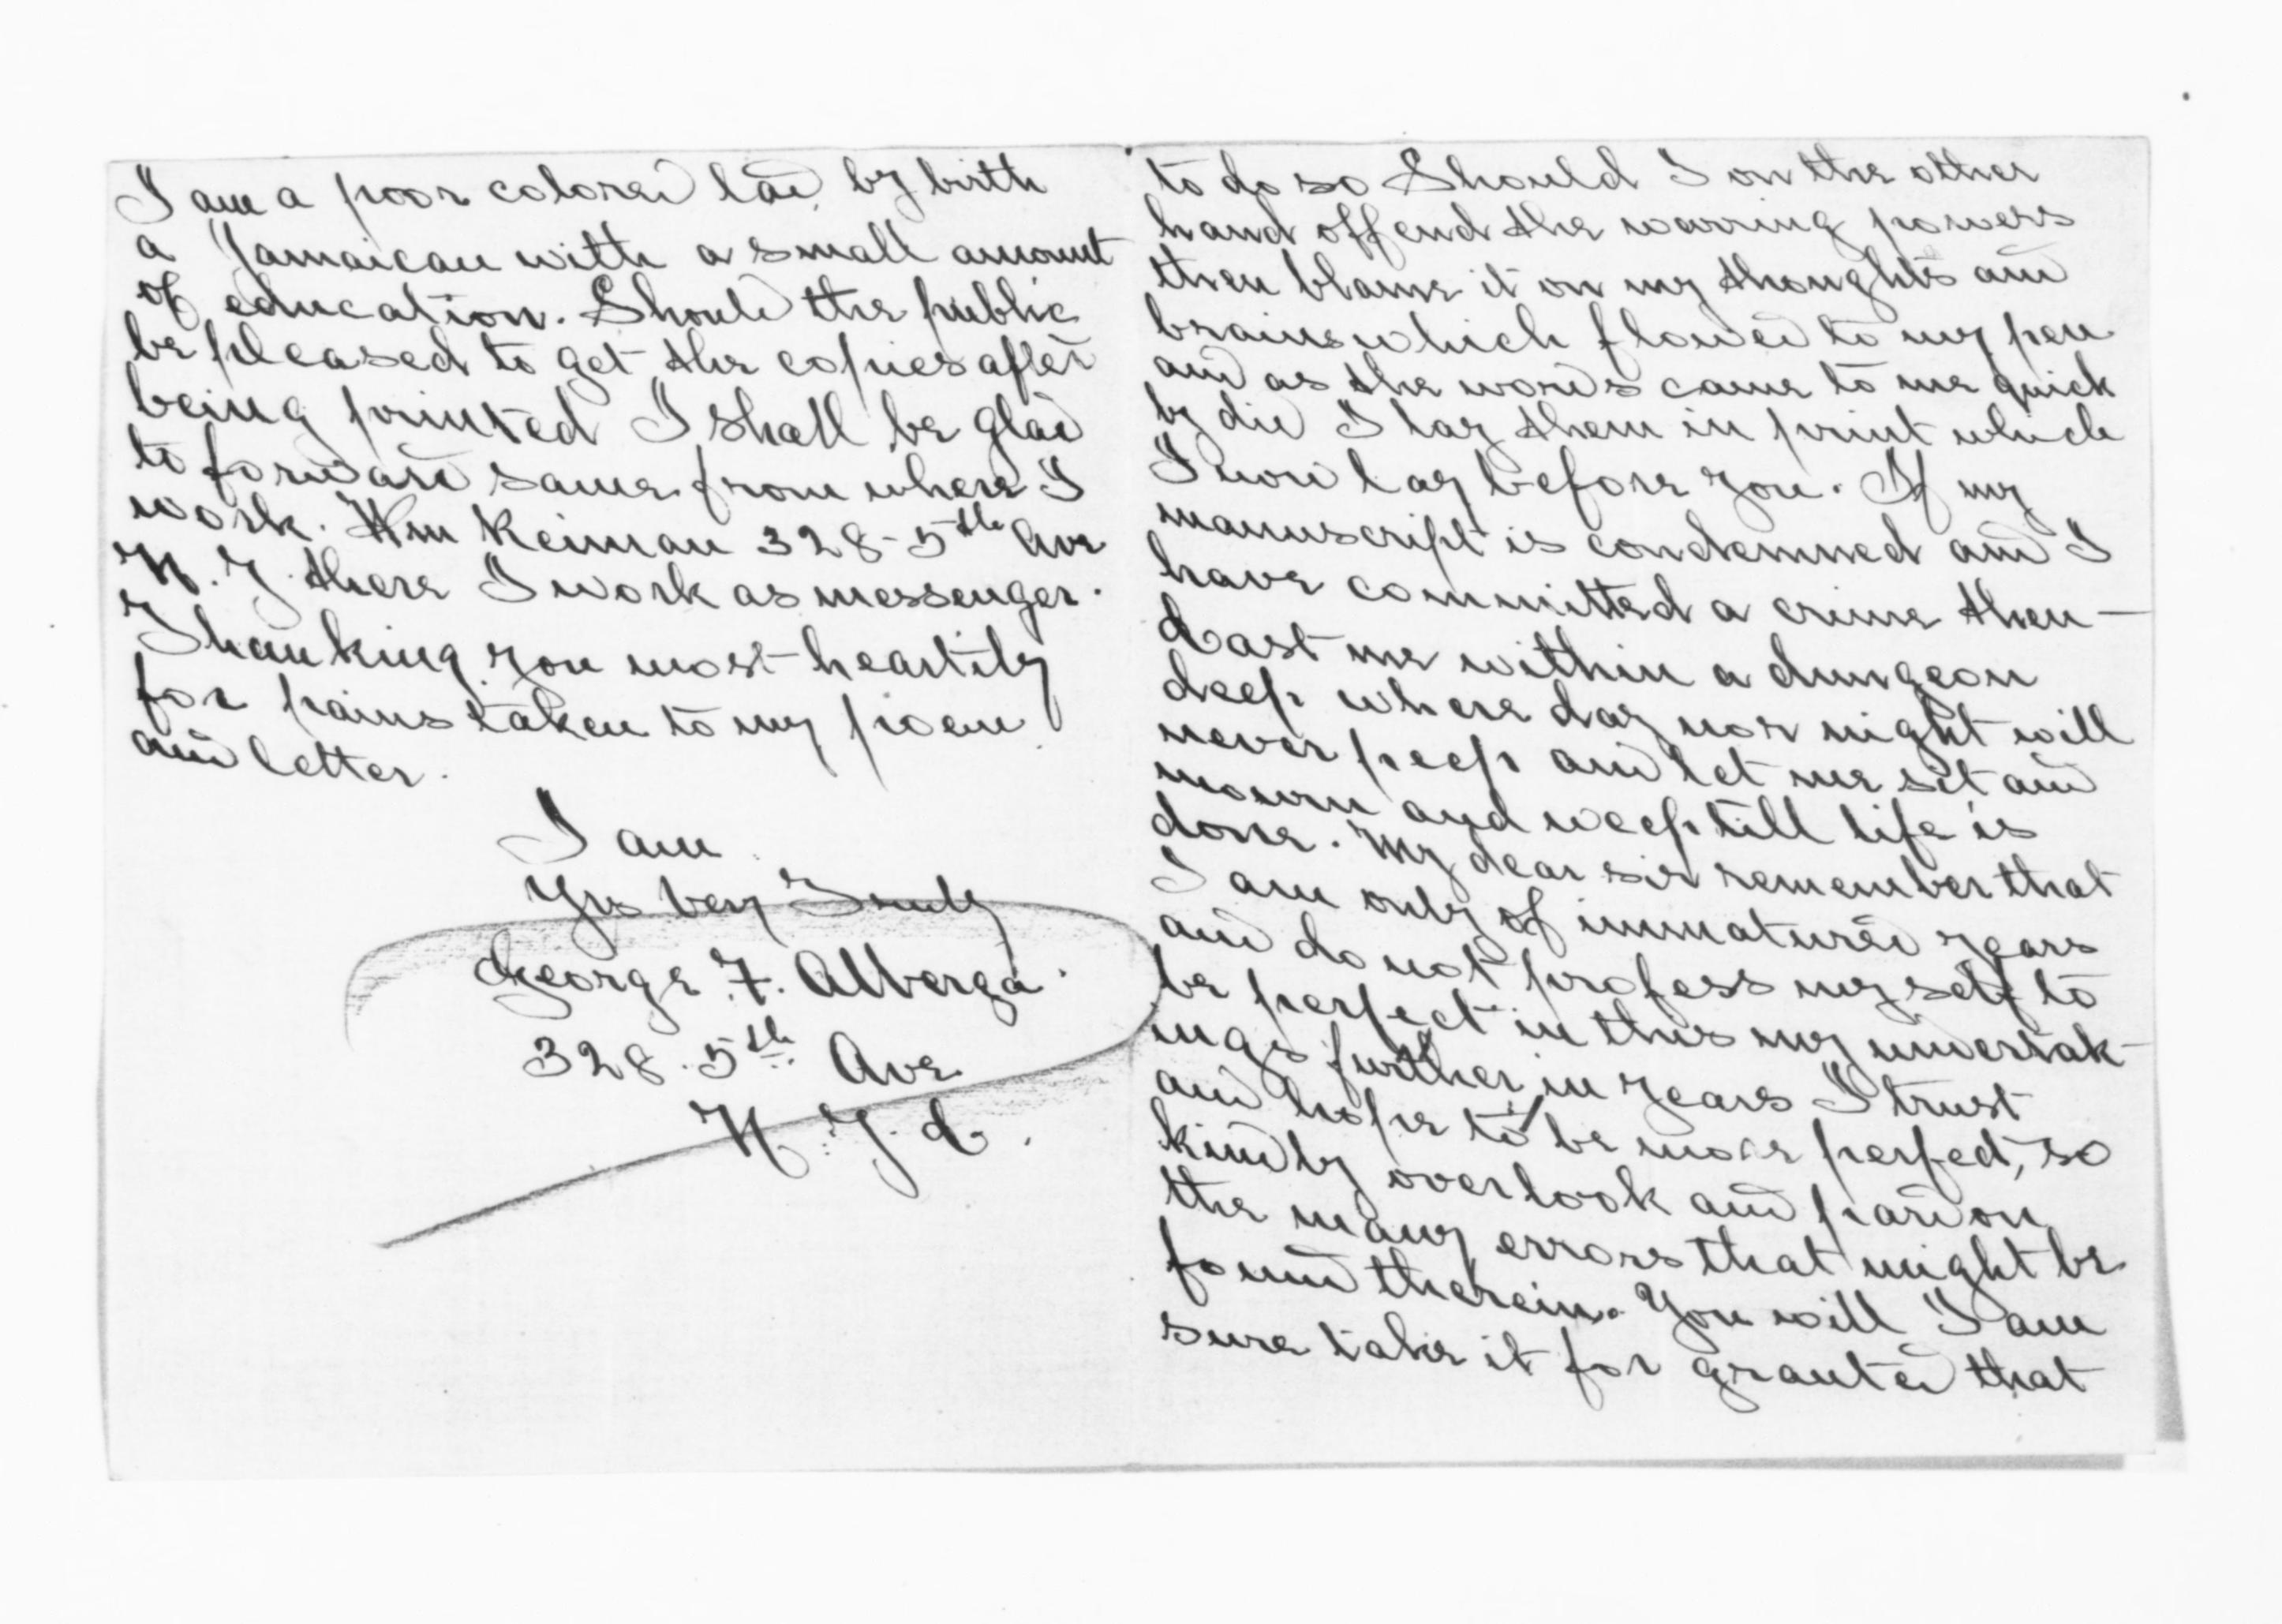 I am a poor colored lad, by birth
a Jamaican with a small amount
of education. Should the public
be pleased to get the copies after
being printed I shall be glad
to forward same from where I
work. Wm Reiman 328-5th Ave
N.Y. there I work as messenger.
Thanking you most heartily
for pains taken to my poem
and letter.
I am
Yrs very Truly
George F. Alberga
328. 5th Ave
N.Y.C.
to do so Should I on the other
hand offend the warring powers
then blame it on my thoughts and
brains which flowed to my pen
and as the words came to me quick
by did I lay them in print which
I now lay before you. If my
manuscript is condemned and I
have committed a crime then —
Cast me within a dungeon
deep where day nor night will
never peep and let me sit and
mourn and weep till life is
done. My dear sir remember that
I am only of immatured years
and do not profess myself to
be perfect in this my undertak-
ings further in years I trust
and hope to be more perfect, so
kindly overlook and pardon
the many errors that might be
found therein. You will I am
sure take it for granted that